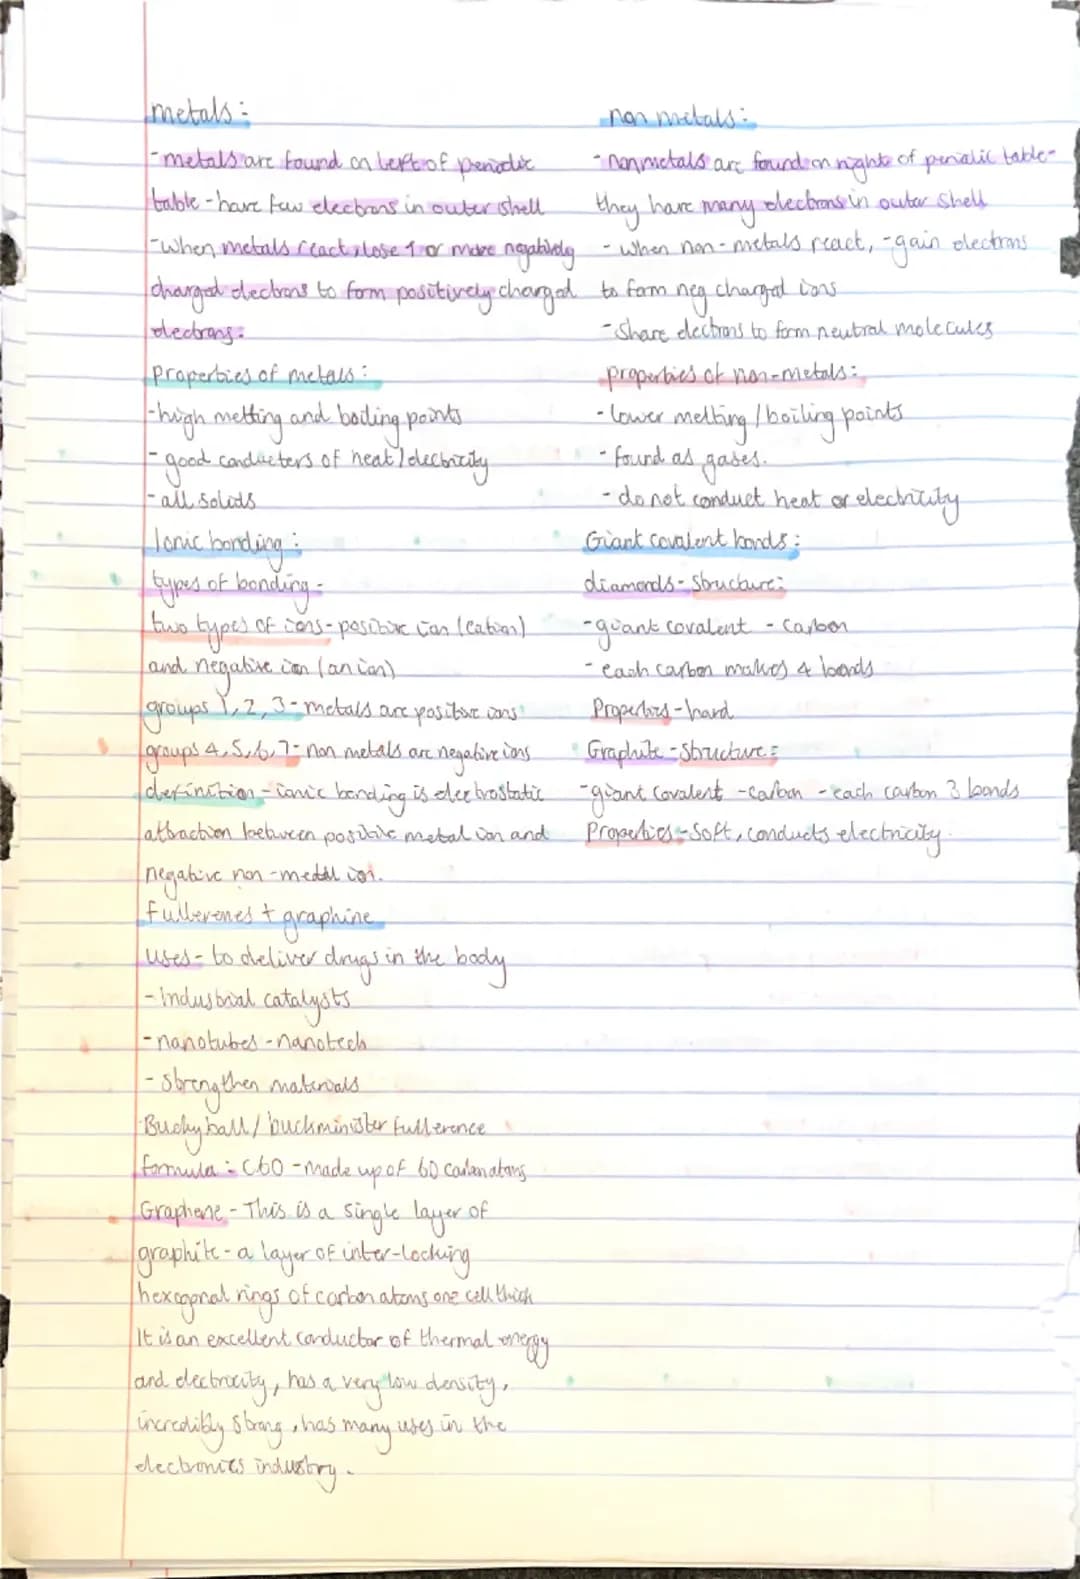 metals:
- metals are found on left of periodic
table - have few electrons in outer shell
- when metals react, lose 1 or more negatively
charged electrons to form positively charged
electrons.
Properties of metals:
- high melting and boiling points
- good conducters of heat / electricity
- all solids
Ionic bonding:
types of bonding -
two types of ions - positive ion (cation)
and negative ion (an ion)
groups 1, 2, 3 - metals are positive ions
groups 4, 5, 6, 7 - non metals are negative ions
definition - ionic bonding is electrostatic
attraction between positive metal ion and
negative non-metal ion.
fullerenes + graphine
uses - to deliver drugs in the body
- industrial catalysts
- nanotubes - nanotech
- strengthen materials
Buckyball / buckminister fullerence
formula: C60 - made up of 60 carbon atoms
Graphene - This is a single layer of
graphite - a layer of inter-locking
hexagonal rings of carbon atoms one cell thick
It is an excellent conductor of thermal energy
and electricity, has a very low density,
incredibly strong, has many uses in the
electronics industry.
non metals:
- non metals are found on right of periodic table -
they have many electrons in outer shell
- when non-metals react, - gain electrons
to form neg charged ions
- share electrons to form neutral molecules
properties of non-metals:
- lower melting / boiling points
- found as gases.
- do not conduct heat or electricity
Giant covalent bonds:
diamonds - Structure:
- giant covalent - carbon
- each carbon makes 4 bonds
Properties - hard
Graphite - Structure:
- giant covalent - carbon - each carbon 3 bonds
Properties - Soft, conducts electricity.